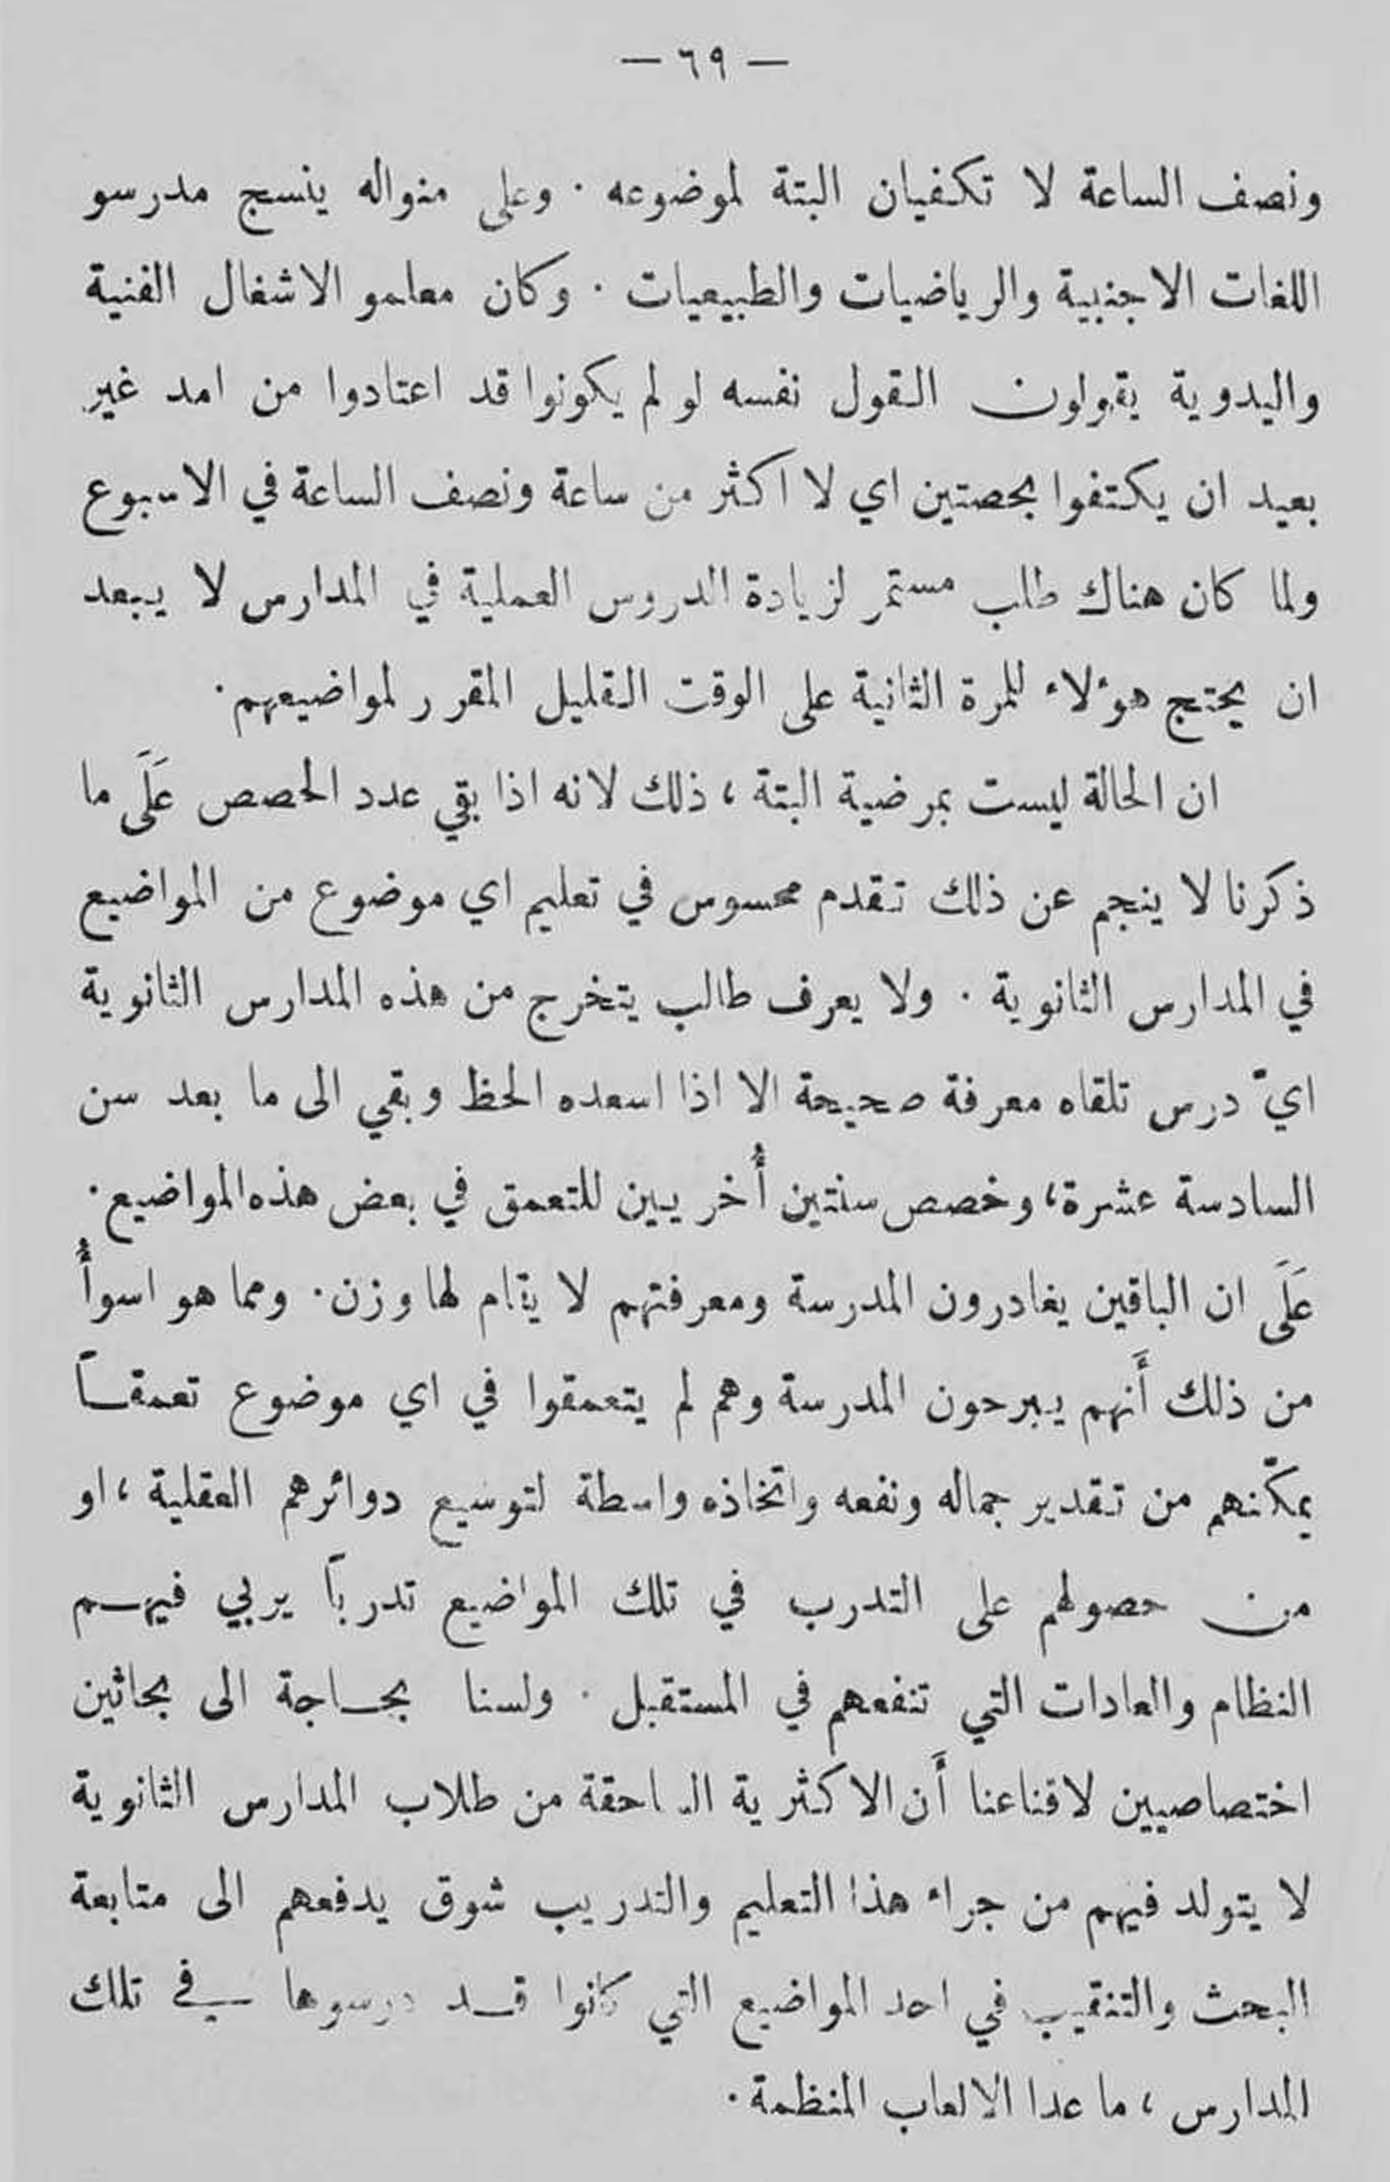 — ٦٩ —
ونصف الساعة لا تكفيان البتة لموضوعه . وعلى منواله ينسج مدرسو
اللغات الاجنبية والرياضيات والطبيعيات . وكان معلمو الاشغال الفنية
واليدوية يقولون القول نفسه لو لم يكونوا قد اعتادوا من امد غير
بعيد ان يكتفوا بحصتين اي لا اكثر من ساعة ونصف الساعة في الاسبوع
ولما كان هناك طلب مستمر لزيادة الدروس العملية في المدارس لا يبعد
ان يحتج هؤلاء للمرة الثانية على الوقت القليل المقرر لمواضيعهم .
ان الحالة ليست بمرضية البتة ، ذلك لانه اذا بقي عدد الحصص عَلَى ما
ذكرنا لا ينجم عن ذلك تقدم محسوس في تعليم اي موضوع من المواضيع
في المدارس الثانوية . ولا يعرف طالب يتخرج من هذه المدارس الثانوية
ايّ درس تلقاه معرفة صحيحة الا اذا اسعده الحظ وبقي الى ما بعد سن
السادسة عشرة ، وخصص سنتين أُخريين للتعمق في بعض هذه المواضيع .
عَلَى ان الباقين يغادرون المدرسة ومعرفتهم لا يقام لها وزن . ومما هو اسوأُ
من ذلك أَنهم يبرحون المدرسة وهم لم يتعمقوا في اي موضوع تعمقاً
يمكّنهم من تقدير جماله ونفعه واتخاذه واسطة لتوسيع دوائرهم العقلية ، او
من حصولهم على التدرب في تلك المواضيع تدرباً يربي فيهم
النظام والعادات التي تنفعهم في المستقبل . ولسنا بحاجة الى بحاثين
اختصاصيين لاقناعنا أَن الاكثرية الساحقة من طلاب المدارس الثانوية
لا يتولد فيهم من جراء هذا التعليم والتدريب شوق يدفعهم الى متابعة
البحث والتنقيب في احد المواضيع التي كانوا قد درسوها في تلك
المدارس ، ما عدا الالعاب المنظمة .